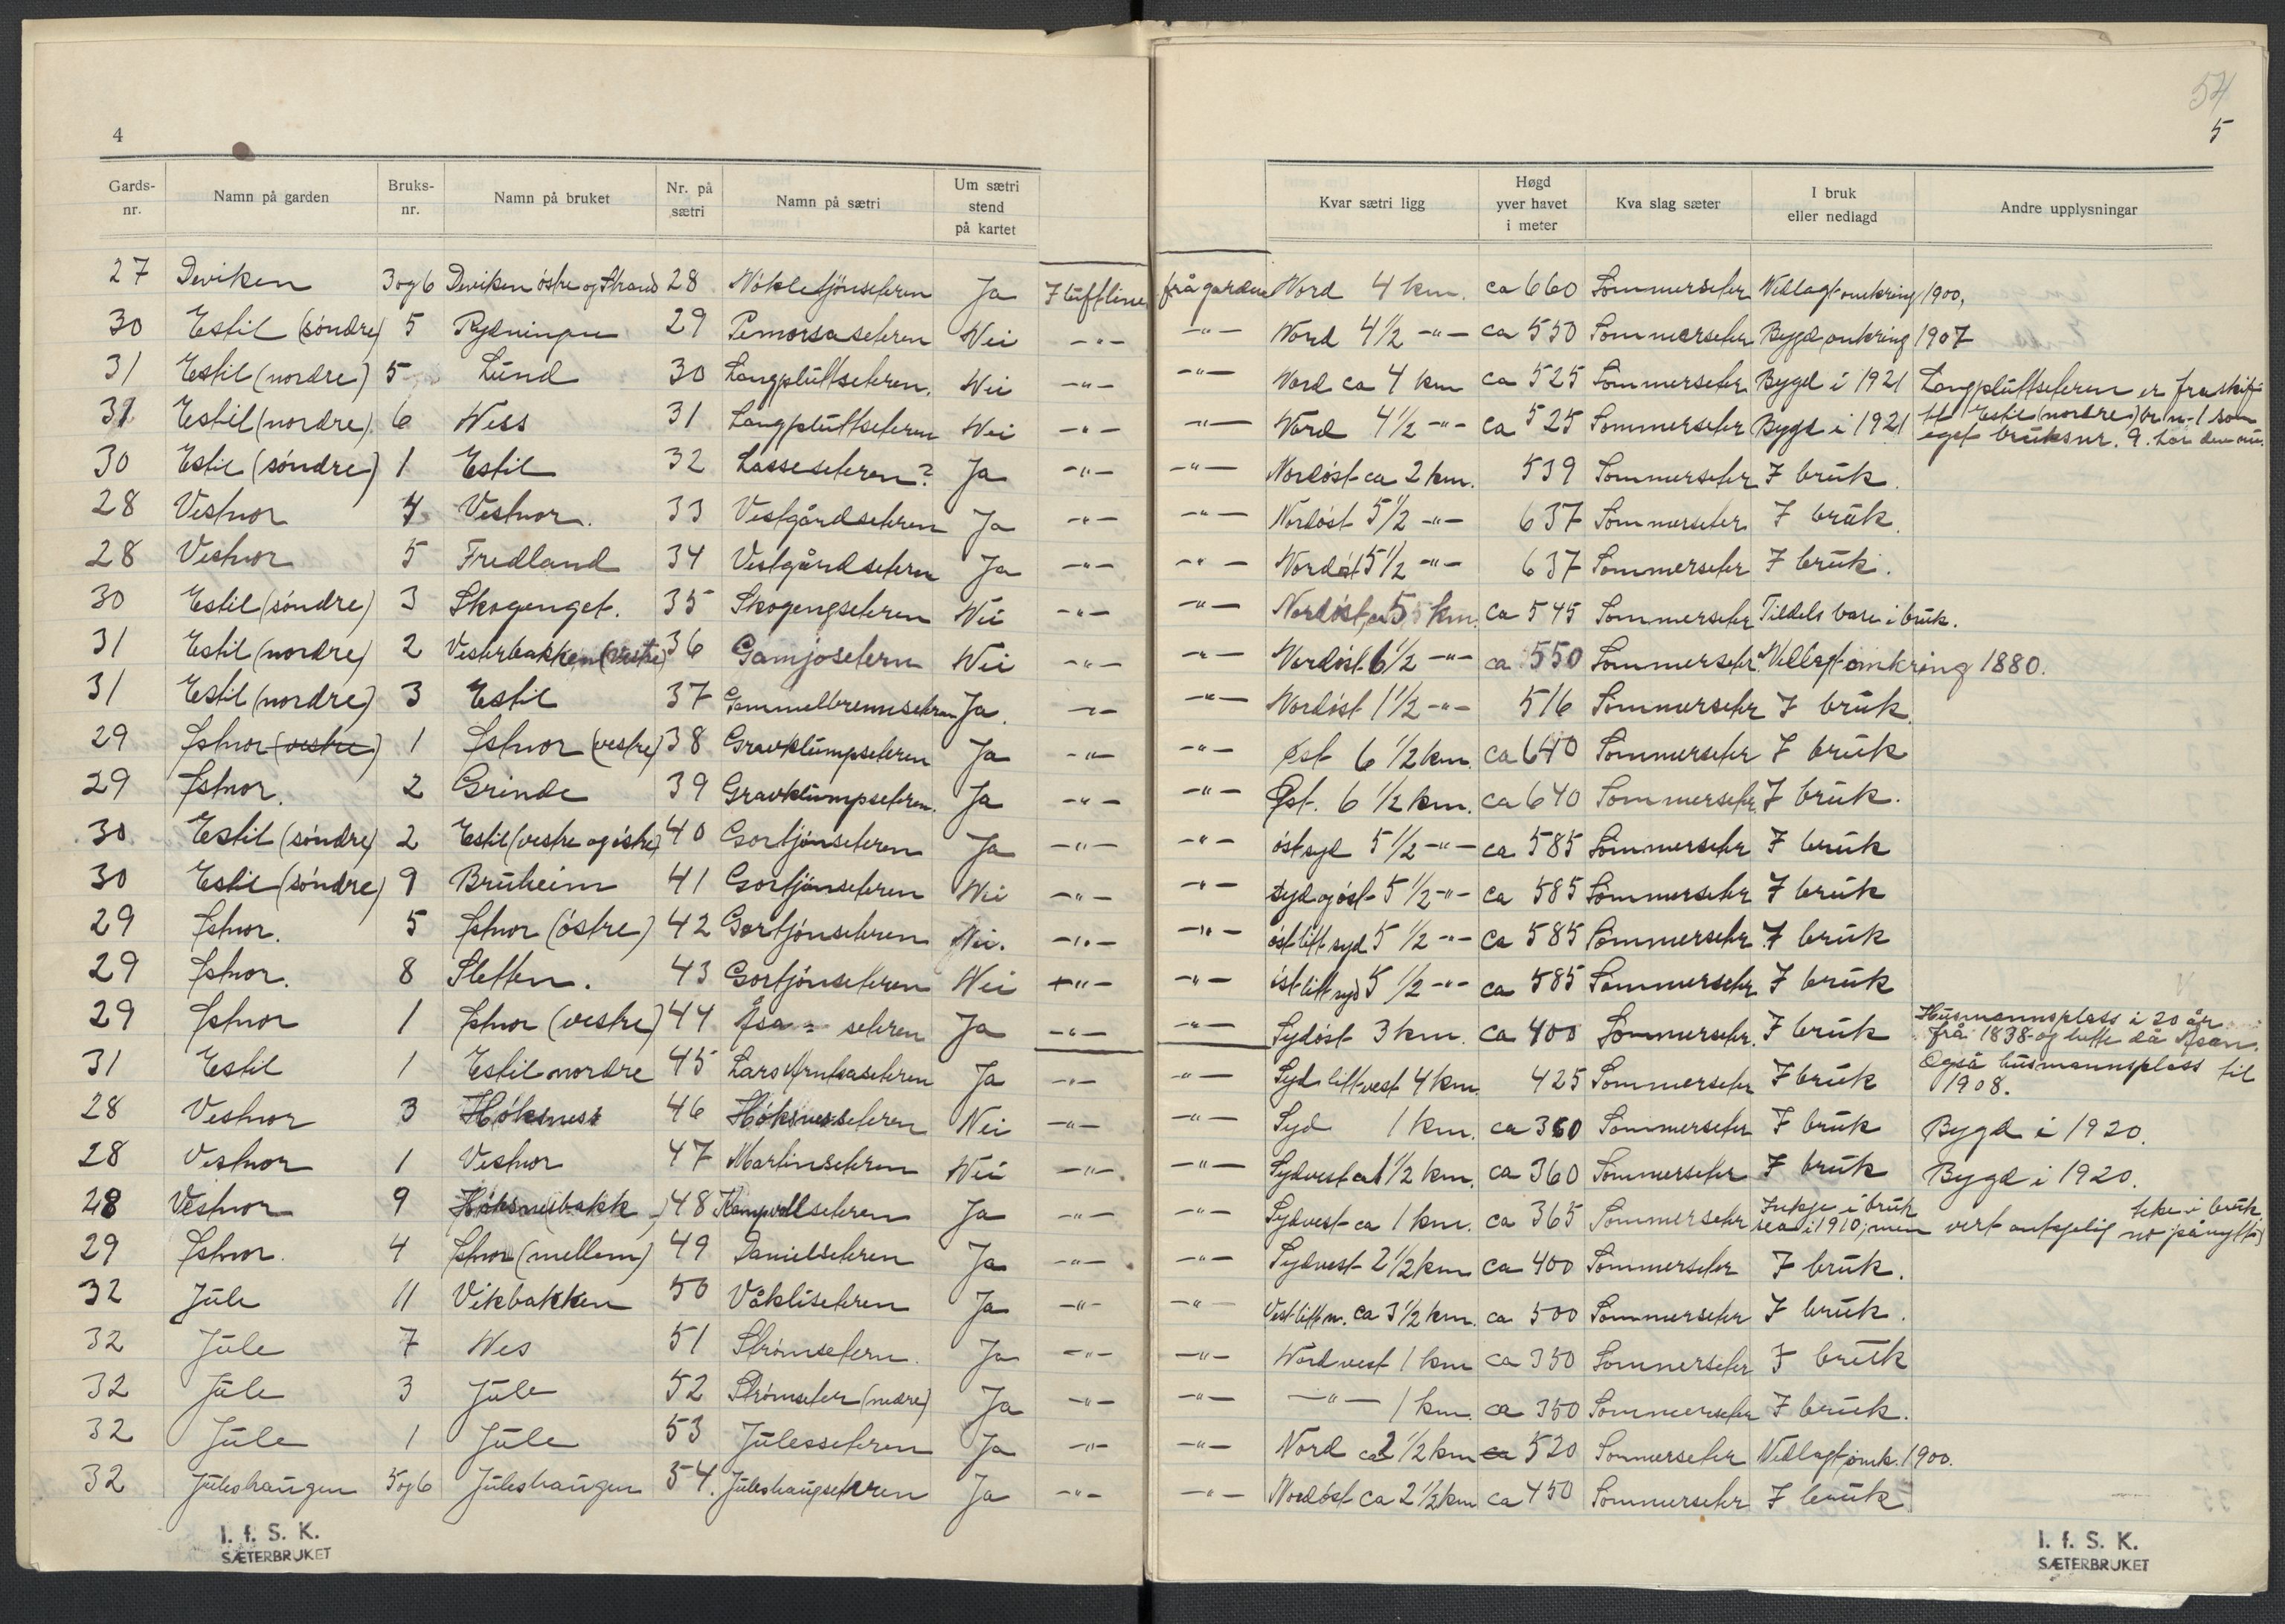 4
54
5
Gards-nr. Namn på garden Bruks-nr. Namn på bruket Nr. på sætri Namn på sætri Um sætri stend på kartet Kvar sætri ligg Høgd yver havet i meter Kva slag sæter I bruk eller nedlagd Andre upplysningar
27 Deviken 3og6 Deviken østre og Strand 28 Nökletjönseteren Ja I luftline frå gardene Nord 4 km. ca 660 Sommerseter Nedlagt omkring 1900.
30 Estil (söndre) 5 Rydningen 29 Pemorsaseteren Nei -"- -"- Nord 4 1/2 -"- ca 550 Sommerseter Bygd omkring 1907
31 Estil (nordre) 5 Lund 30 Langpluttseteren. Nei -"- -"- Nord ca 4 km ca 525 Sommerseter Bygd i 1921 Langpluttseteren er fraskift
31 Estil (nordre) 6 Ness 31 Langpluttseteren Nei -"- -"- Nord 4 1/2 -"- ca 525 Sommerseter Bygd i 1921 Estil (nordre) br.n. 1 som
eget bruksnr. 9. har den nu.
30 Estil (söndre) 1 Estil 32 Lasseseteren? Ja -"- -"- Nordöst ca 2 km. 539 Sommerseter I bruk.
28 Vestnor 4 Vestnor. 33 Vestgårdseteren Ja -"- -"- Nordöst 5 1/2 -"- 637 Sommerseter I bruk.
28 Vestnor 5 Fredland 34 Vestgårdsetern Ja -"- -"- Nordöst 5 1/2 -"- 637 Sommerseter I bruk.
30 Estil (söndre) 3 Skogenget. 35 Skogengseteren Nei -"- -"- Nordöst ca 5 km. ca 545 Sommerseter Tildels bare i bruk.
31 Estil (nordre) 2 Vesterbakken (vestre) 36 Gamjosetern Nei -"- -"- Nordöst 6 1/2 -"- ca 550 Sommerseter Nedlagt omkring 1880.
31 Estil (nordre) 3 Estil 37 Gammelbrennseteren Ja. -"- -"- Nordöst 1 1/2 -"- 516 Sommerseter I bruk.
29 Østnor (vestre) 1 Østnor (vestre) 38 Gravklumpseteren Ja -"- -"- Øst 6 1/2 km. ca 640 Sommerseter I bruk
29 Østnor. 2 Grinde 39 Gravklumpseteren. Ja -"- -"- Øst. 6 1/2 km. ca 640 Sommerseter I bruk.
30 Estil (söndre) 2 Estil (vestre og östre) 40 Gortjönseteren Ja -"- -"- öst syd 5 1/2 -"- ca 585 Sommerseter I bruk
30 Estil (söndre) 9 Bruheim 41 Gortjönseteren Nei -"- -"- syd og öst 5 1/2 -"- ca 585 Sommerseter I bruk
29 Østnor. 5 Østnor (östre) 42 Gortjönseteren Nei. -"- -"- öst litt syd 5 1/2 -"- ca 585 Sommerseter I bruk
29 Østnor. 8 Sletten. 43 Gortjönseteren Nei -"- -"- öst litt syd 5 1/2 -"- ca 585 Sommerseter I bruk
29 Østnor 1 Østnor (vestre) 44 Åsa - seteren Ja -"- -"- Sydöst 3 km. ca 400 Sommerseter. I bruk Husmannsplass i 20 år
frå 1838 og hette då Åsen.
31 Estil 1 Estil nordre 45 Lars Arntsaseteren Ja -"- -"- Syd litt vest 4 km. 425 Sommerseter I bruk Også husmannsplass til
1908.
28 Vestnor 3 Höksness 46 Höksnesseteren Nei -"- -"- Syd 1 km. ca 360 Sommerseter I bruk Bygd i 1920.
28 Vestnor 1 Vestnor 47 Martinseteren Nei -"- -"- Sydvest ca 1 1/2 km. ca 360 Sommerseter I bruk Bygd i 1920.
28 Vestnor 9 Höksnesbakk 48 Kampvollseteren Ja -"- -"- Sydvest ca 1 km. ca 365 Sommerseter Inkje i bruk
sea i 1910, men vert antagelig teke i bruk no på nytt
29 Østnor. 4 Østnor (mellem) 49 Danielseteren Ja -"- -"- Sydvest 2 1/2 km ca 400 Sommerseter I bruk.
32 Jule 11 Vikbakken 50 Våkliseteren Ja -"- -"- Vest litt n. ca 3 1/2 km. ca 500 Sommerseter I bruk.
32 Jule 7 Nes 51 Strömsetern. Ja -"- -"- Nordvest 1 km ca 350 Sommerseter I bruk
32 Jule 3 Jule 52 Strömseter (nedre) Ja -"- -"- -"- 1 km. ca 350 Sommerseter I bruk.
32 Jule 1 Jule 53 Julesseteren Ja -"- -"- Nord ca 2 1/2 km ca 520 Sommerseter Nedlagt omk. 1900.
32 Juleshaugen 5og6 Juleshaugen 54. Juleshaugseteren Ja -"- -"- Nordöst ca 2 1/2 km ca 450 Sommerseter I bruk
I. f. S. K.
SÆTERBRUKET
I. f. S. K.
SÆTERBRUKET